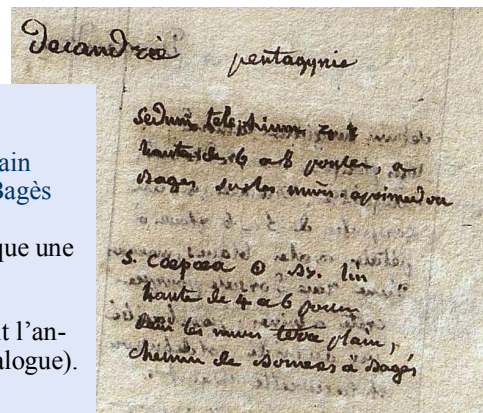 Decandrie pentagynie
Sedum telephium
hauteur de 6 a 8 pouces, a
Bages sur les murs
S. Cœpœa ⊙ lin
haute de 4 a 6 pouces
sur les murs terre plain,
chemin de Bomens à Bagés
ain
Bagès
que une
t l’an-
alogue).